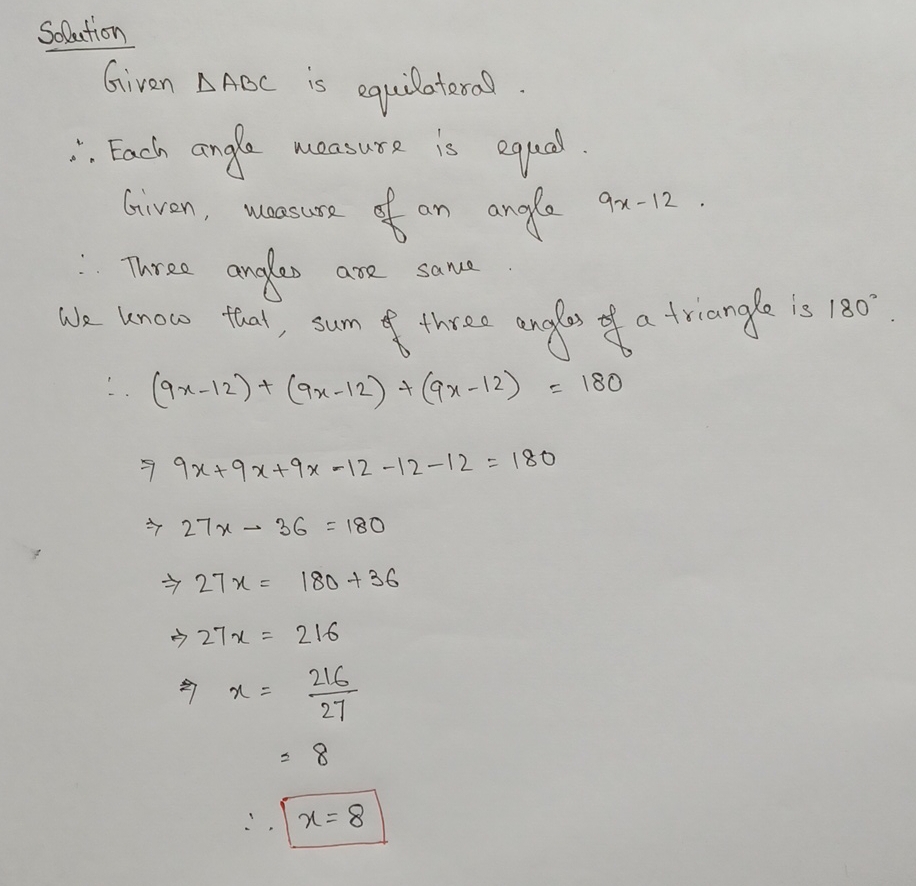 Solution
Given ΔABC is equilateral.
∴ Each angle measure is equal.
Given, measure of an angle 9x-12.
∴ Three angles are same.
We know that, sum of three angles of a triangle is 180°.
∴ (9x-12) + (9x-12) + (9x-12) = 180
⇒ 9x+9x+9x-12-12-12 = 180
⇒ 27x - 36 = 180
⇒ 27x = 180+36
⇒ 27x = 216
⇒ x = 216/27
= 8
∴ x = 8